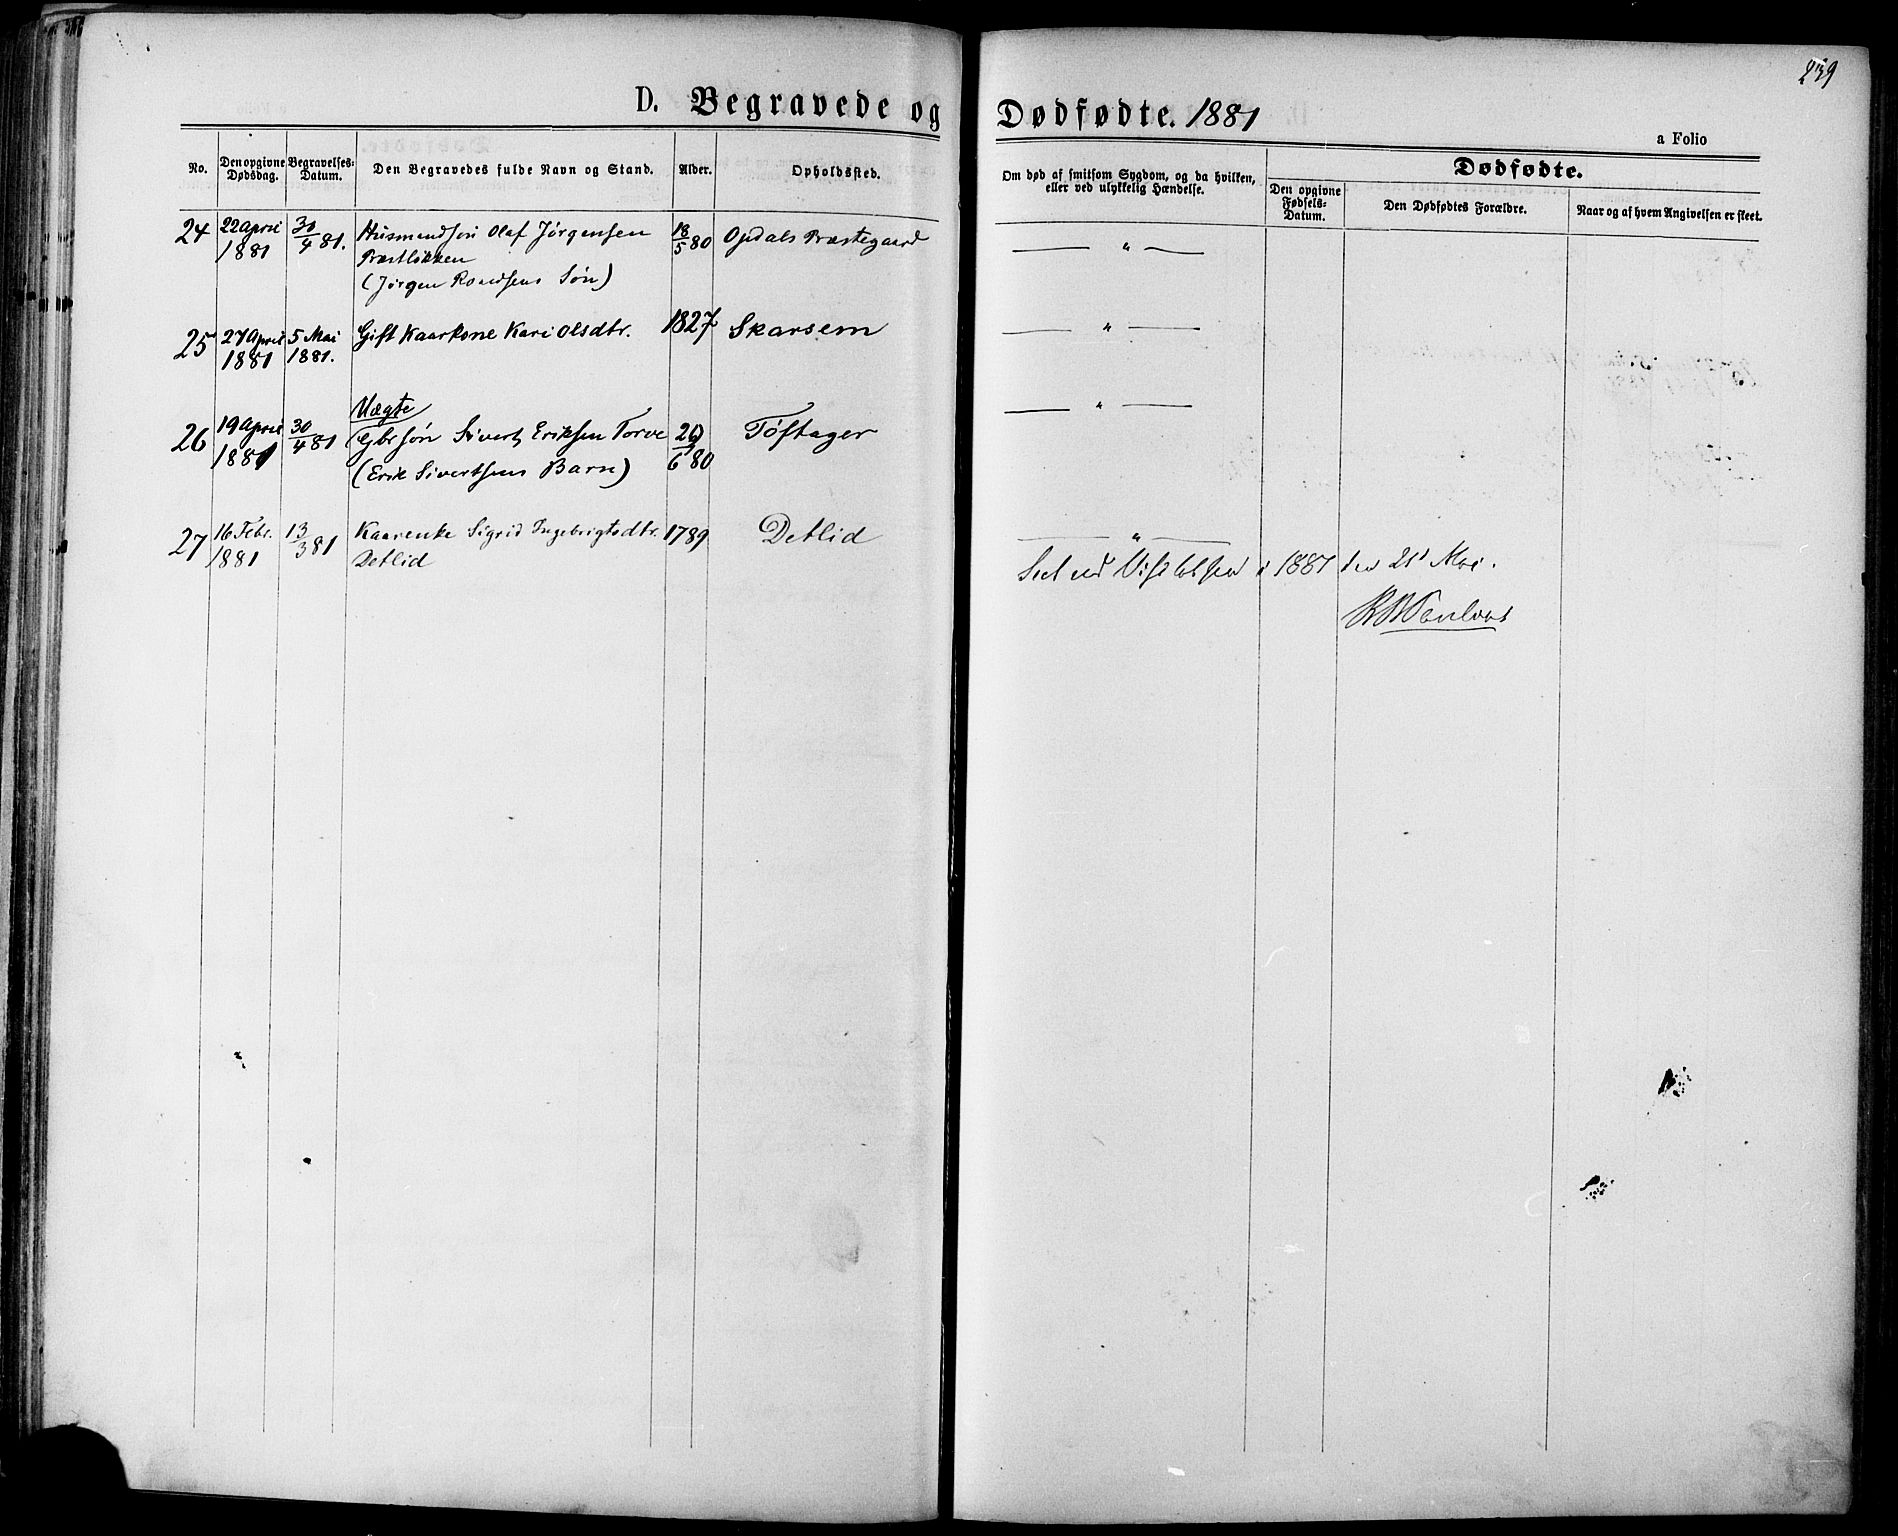 239
D. Begravede og Dødfødte. 1881
a Folio
No.
Den opgivne Dødsdag.
Begravelses-Datum.
Den Begravedes fulde Navn og Stand.
Alder.
Opholdssted.
Om død af smitsom Sygdom, og da hvilken,
eller ved ulykkelig Hændelse.
Dødfødte.
Den opgivne Fødsels-Datum.
Den Dødfødtes Forældre.
Naar og af hvem Angivelsen er skeet.
24 22 April 30/4 81. Husmandssøn Olaf Jørgensen 18/5 80 Opdals Præstegaard — " —
1881 Præstløkken
(Jørgen Søn)
25 27 April 5 Mai Gift Kaarkone Kari Olsdtr. 1827 Skarsem — " —
1881 1881.
Uægte
26 19 April 30/4 81 Gbrsøn Sivert Eriksen Torve 26/6 80 Tøftager — " —
1881 (Erik Sivertsens Barn)
27 16 Febr. 13/3 81 Kaarenke Sigrid Ingebrigtsdtr. 1789 Detlid — " —
1881 Detlid
Seet ved i 1881 den 21 Mai.